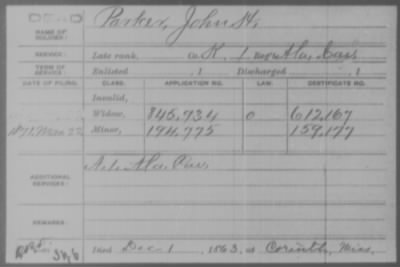 DEAD
Parker, John H.
NAME OF SOLDIER:
SERVICE: Late rank, Co. K, 1 Reg't Ala. Cav.
TERM OF SERVICE: Enlisted , 1 Discharged , 1
DATE OF FILING. CLASS. APPLICATION NO. LAW. CERTIFICATE NO.
Invalid,
Widow, 845,734 0 612,167
1871, 22 Minor, 194,775 159,177
ADDITIONAL SERVICES: Ala. Cav.
REMARKS:
Died Dec. 1, 1863, at Corinth, Miss.